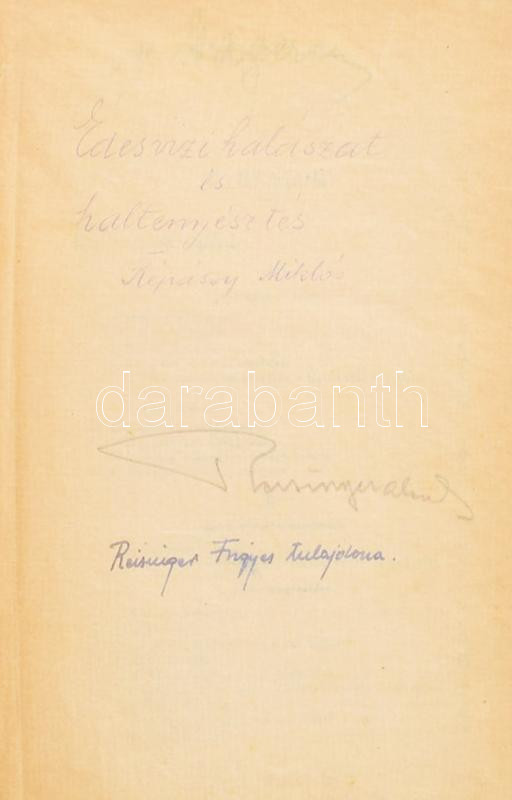 Édesvizi halászat
és
haltenyésztés
Répássy Miklós
darabanth
Reisinger Frigyes tulajdona.